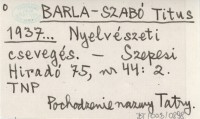 BARLA-SZABÓ Titus
1937... Nyelvészeti
csevegés. – Szepesi
Hiradó 75, nr 44: 2.
TNP
Pochodzenie nazwy Tatry.